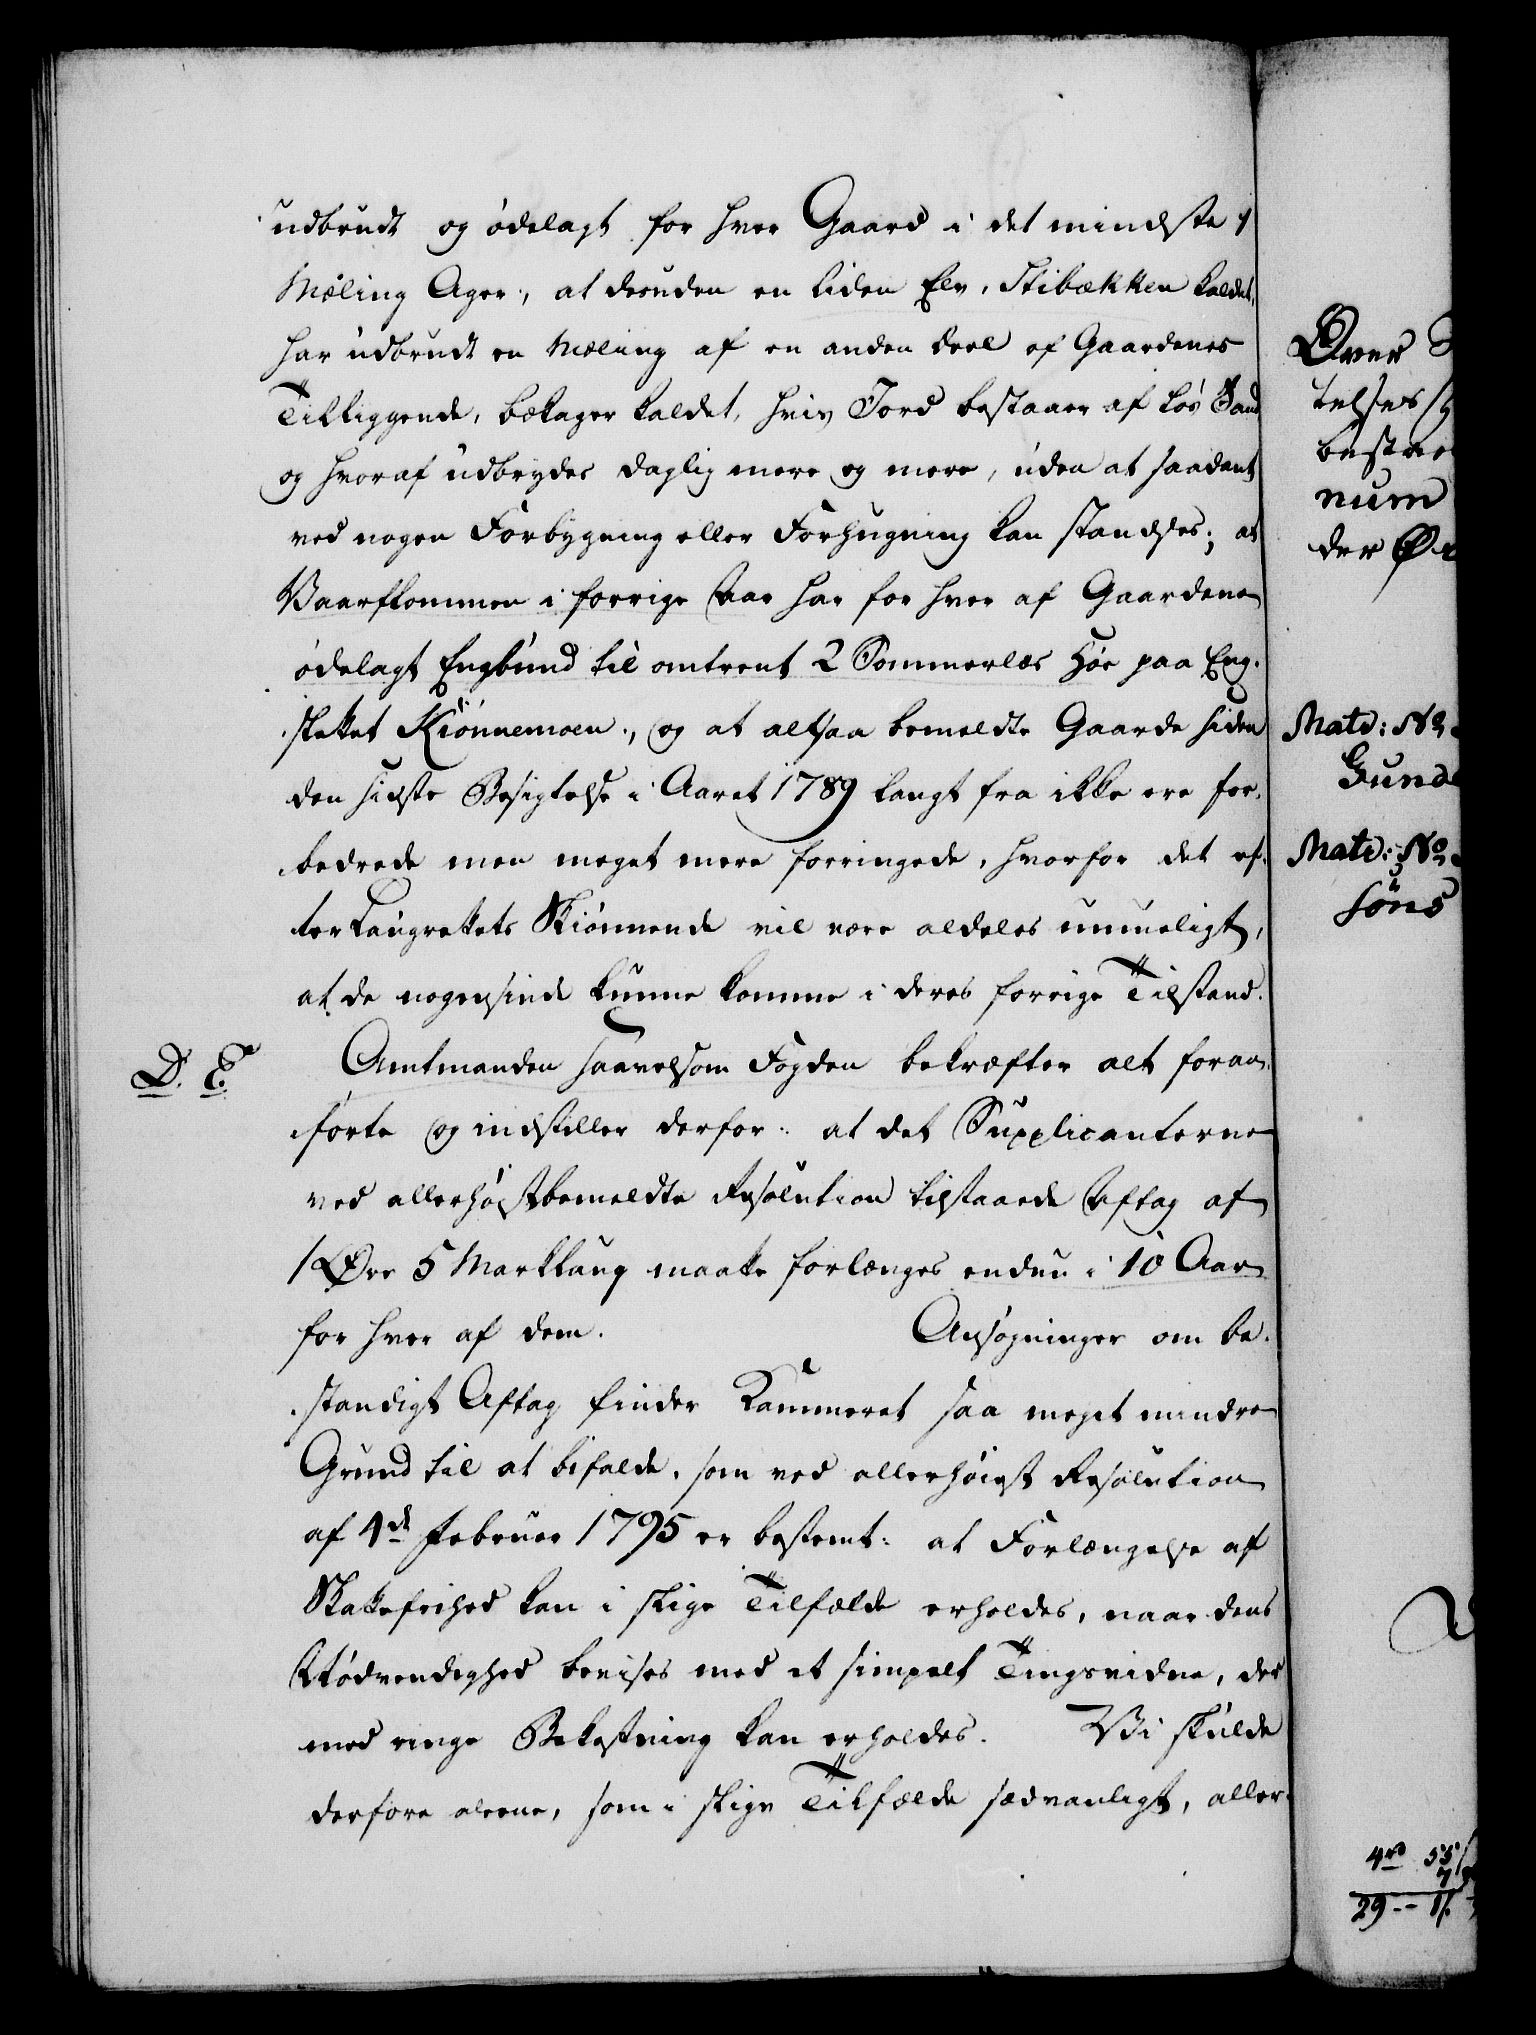 udbrudt og ödelagt for hver Gaard i det mindste 1
Mæling Ager, at desuden en liden Elv, Stibækken kaldet,
har udbrudt en Mæling af en anden Deel af Gaardenes
Tilliggende, Bekager kaldet, hvis Jord bestaaer af løs Sand
og hvoraf udbrydes daglig mere og mere, uden at saadant
ved nogen Forbygning eller Forhugning kan standses; at
Vaarflommen i forrige Aar har for hver af Gaardene
ödelagt Engbund til omtrent 2 Sommerlæs Höe paa Eng-
stykket Kiönnemoen, og at altsaa bemeldte Gaarde siden
den sidste Besigtelse i Aaret 1789 langt fra ikke ere for-
bedrede men meget mere forringede, hvorfor det ef-
ter Laugrettets Skiönnende vil være aldeles umueligt,
at de nogensinde kunne komme i deres forrige Tilstand.
D. E. Amtmanden saavelsom Fogden bekræfter alt foran-
förte og indstiller derfor: at det Supplicanterne
ved allerhöistbemeldte Resolution tilstaaede Aftag af
1 Øre 5 Marklaug maatte forlænges endnu i 10 Aar
for hver af dem. Ansögninger om be-
standigt Aftag finder Kammeret saa meget mindre
Grund til at bifalde, som ved allerhöiest Resolution
af 4de Februar 1795 er bestemt: at Forlængelse af
Skattefrihed kan i slige Tilfælde erholdes, naar dens
Nödvendighed bevises med et simpelt Tingsvidne, der
med ringe Bekostning kan erholdes. Vi skulde
derfore alene, som i slige Tilfælde sædvanligt, aller-
Over
telses
num
der
Matr: No
Gund
Matr: No
söns
4 rd 55
7
29